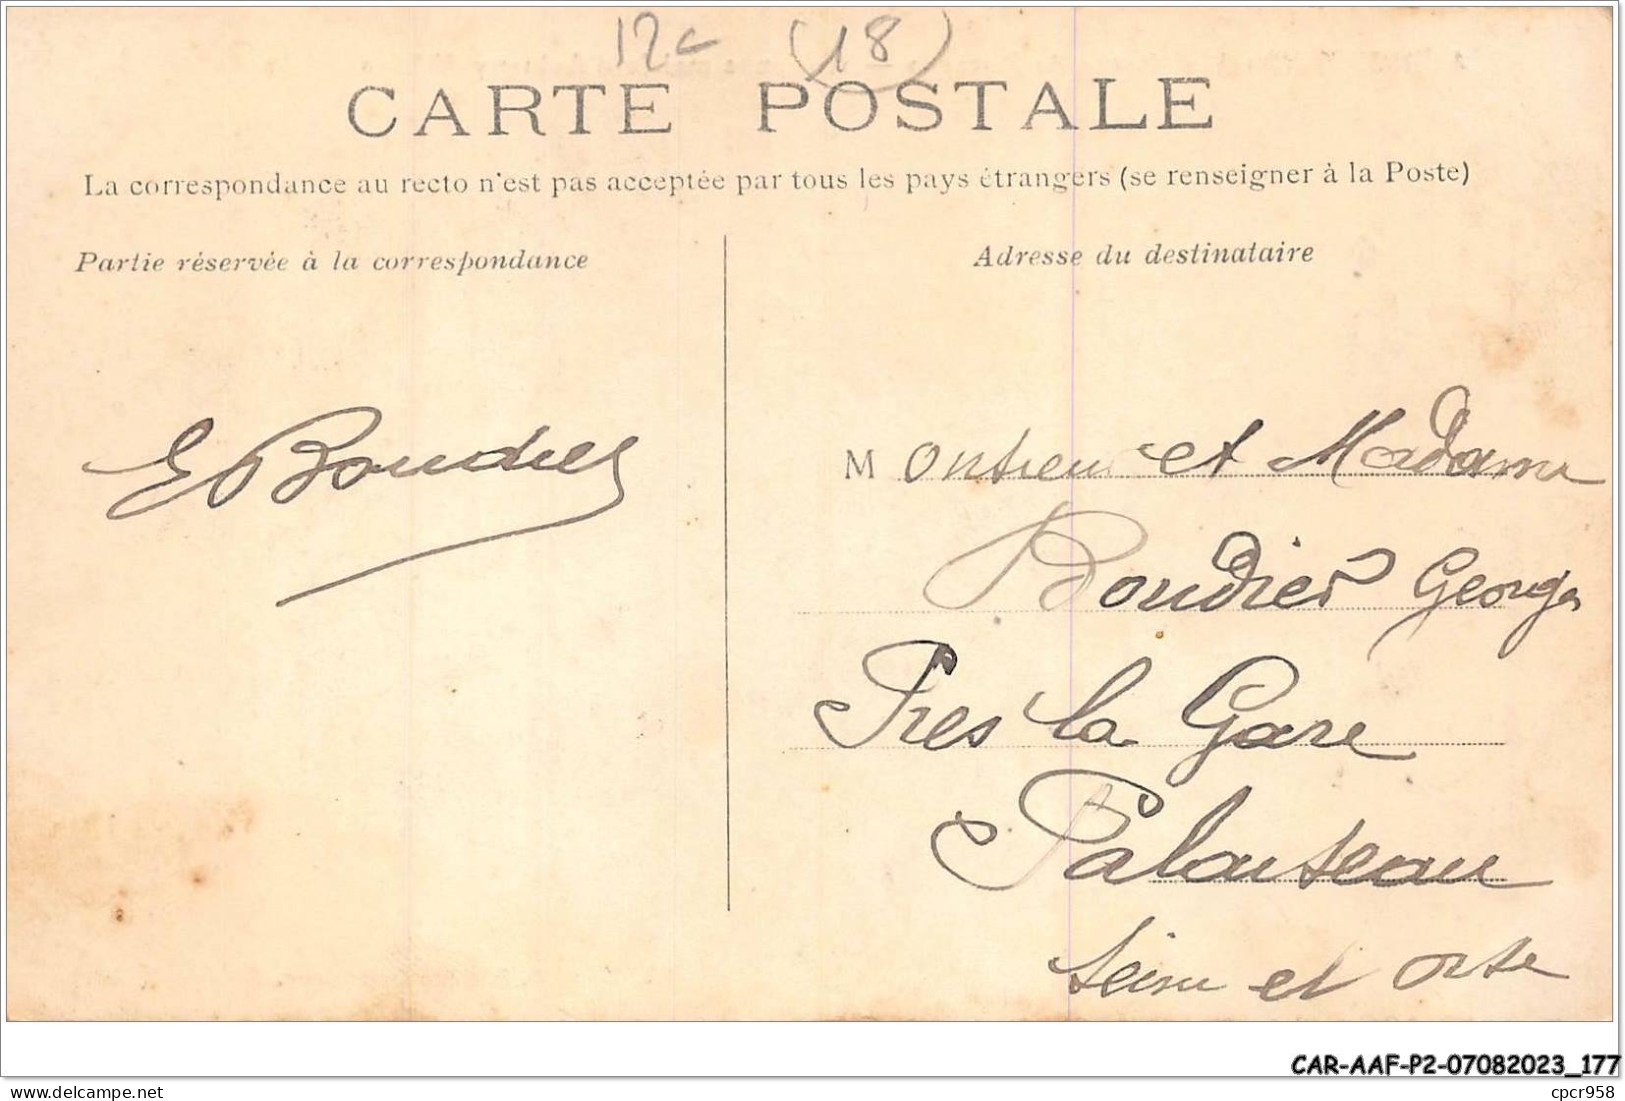 12c (18)
CARTE POSTALE
La correspondance au recto n'est pas acceptée par tous les pays étrangers (se renseigner à la Poste)
Partie réservée à la correspondance
Adresse du destinataire
E Boudier
Monsieur et Madame
Boudier Georges
Pres la Gare
Palaiseau
Seine et Oise
CAR-AAF-P2-07082023_177
cpcr958